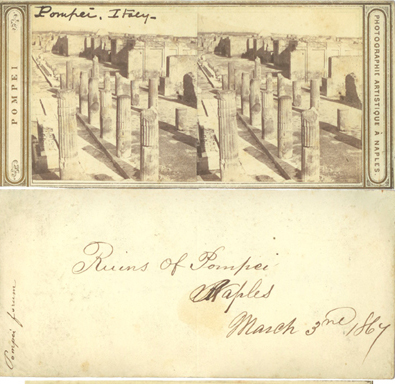 Pompei, Italy.
POMPEI
PHOTOGRAPHIE ARTISTIQUE À NAPLES.
Ruins of Pompei
Naples
March 3rd 1867
Pompei forum